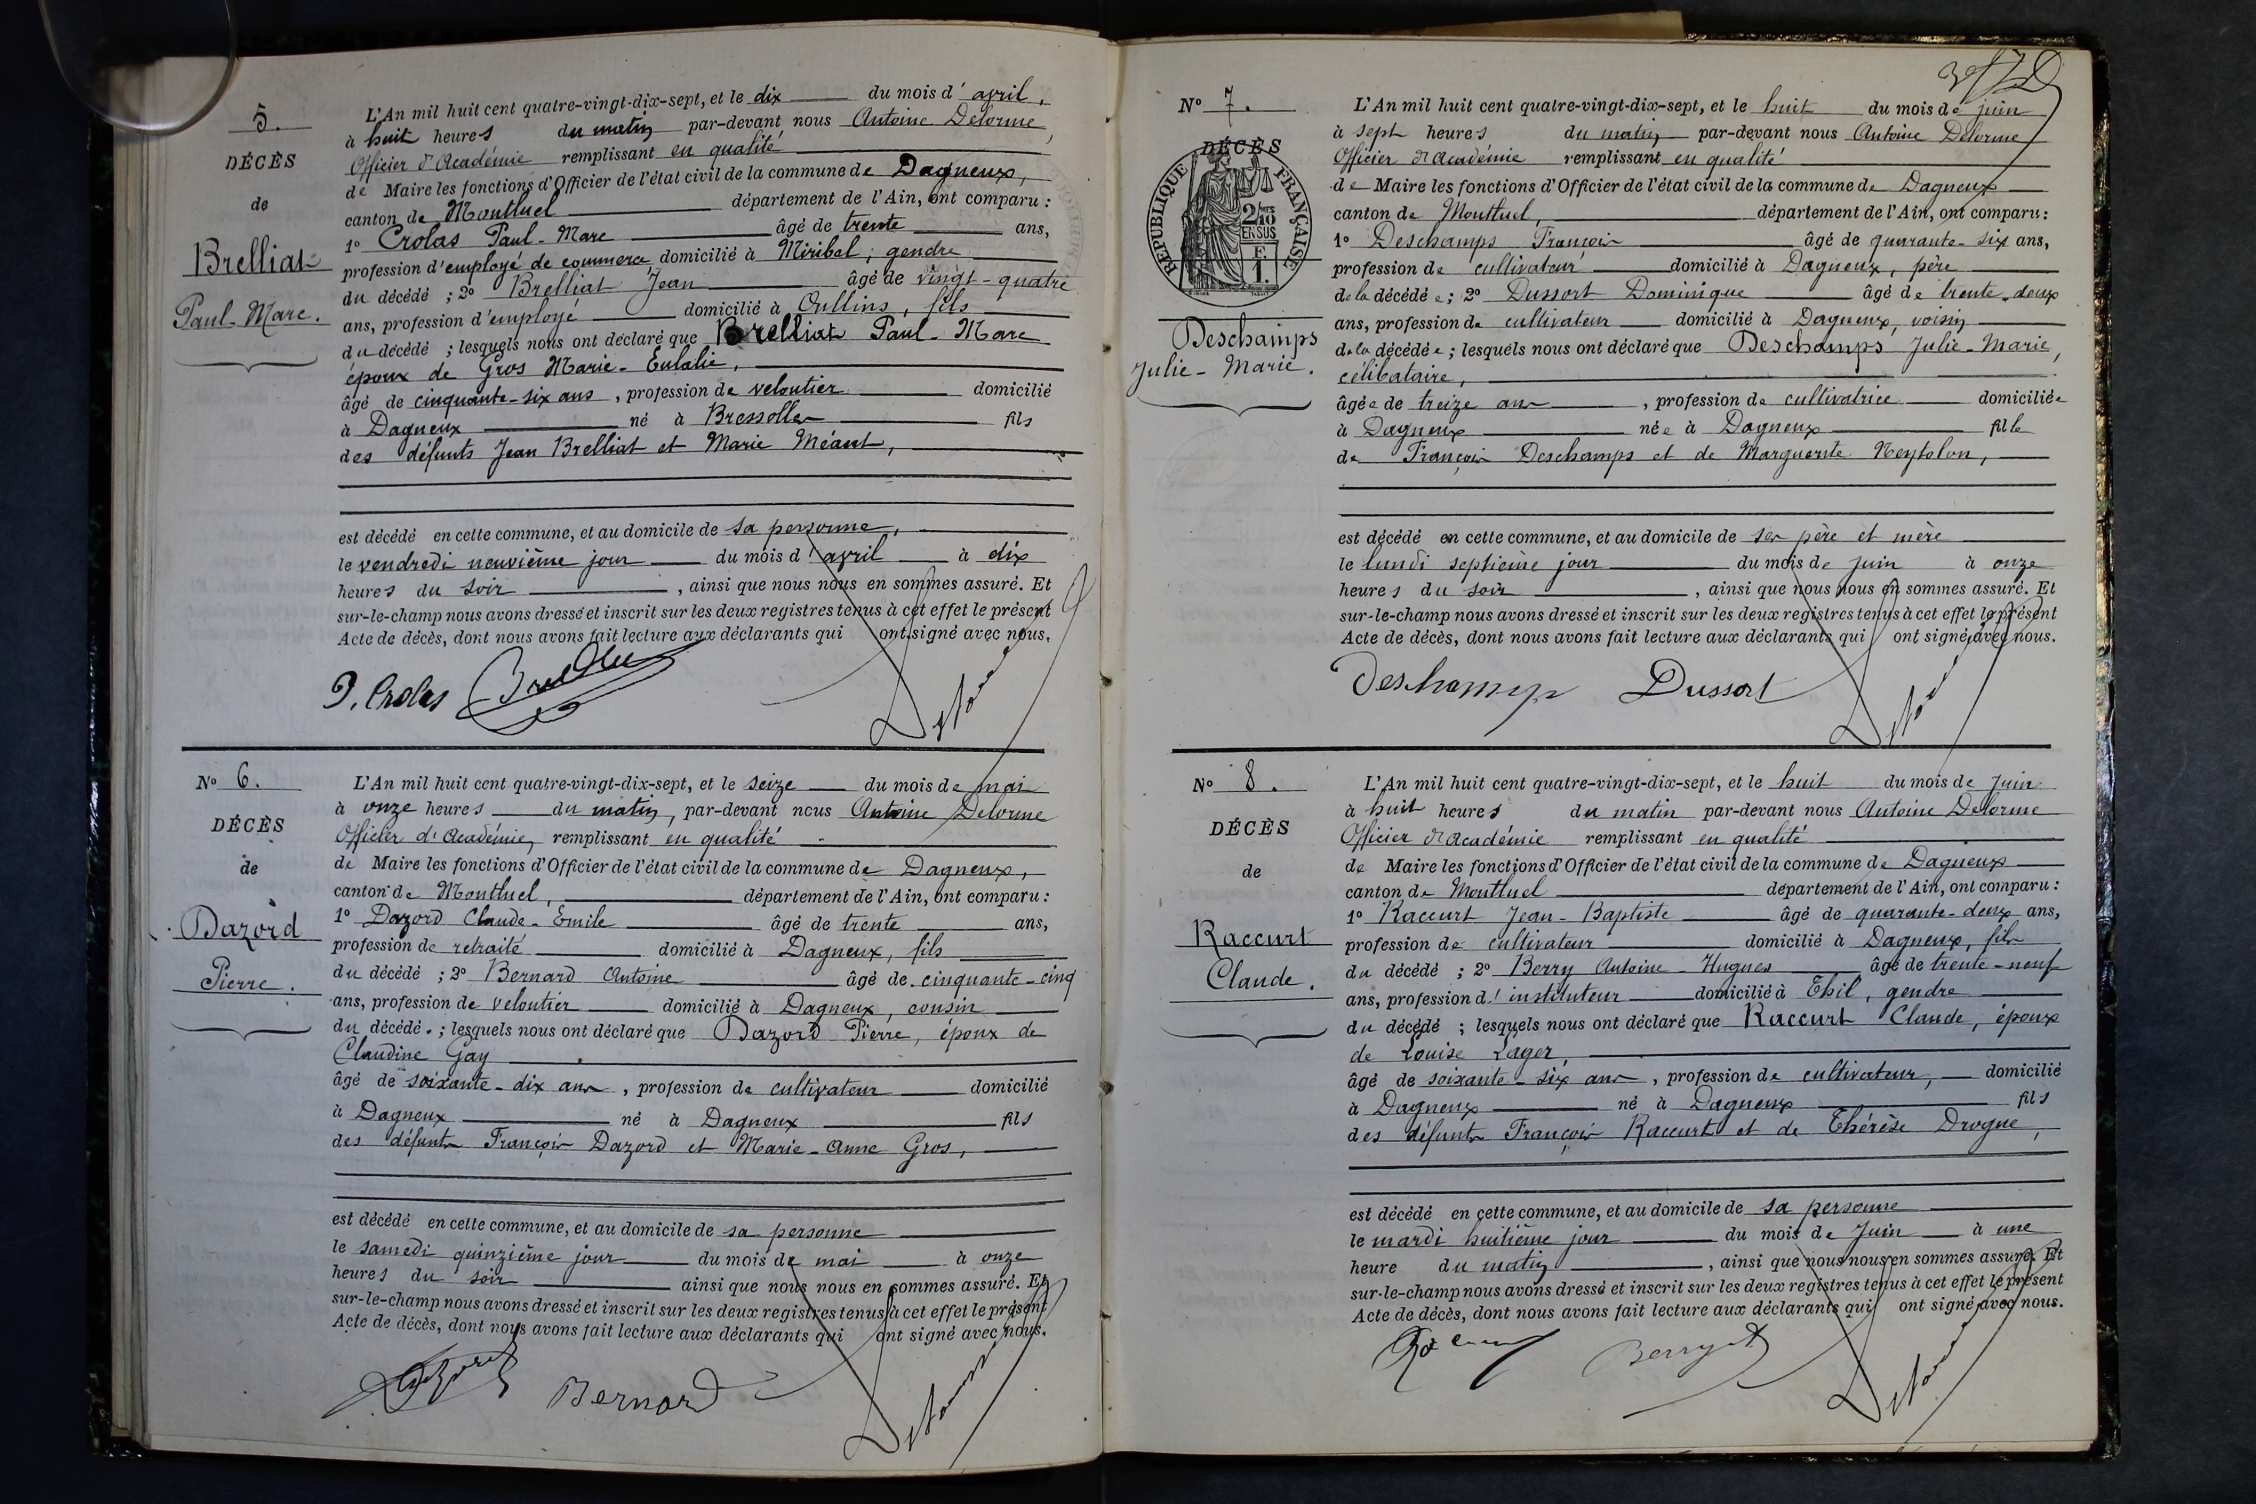 5.
DÉCÈS
de
Brelliat
Paul-Marc.
L'An mil huit cent quatre-vingt-dix-sept, et le dix du mois d'avril,
à huit heures du matin par-devant nous Antoine Delorme,
Officier d'Académie remplissant en qualité
de Maire les fonctions d'Officier de l'état civil de la commune de Dagneux,
canton de Montluel département de l'Ain, ont comparu :
1º Crolas Paul-Marc âgé de trente ans,
profession d'employé de commerce domicilié à Miribel, gendre
du décédé ; 2º Brelliat Jean âgé de vingt-quatre
ans, profession d'employé domicilié à Oullins, fils
du décédé ; lesquels nous ont déclaré que Brelliat Paul-Marc
époux de Gros Marie-Eulalie,
âgé de cinquante-six ans, profession de veloutier domicilié
à Dagneux né à Bressolles fils
des défunts Jean Brelliat et Marie Méant,
est décédé en cette commune, et au domicile de sa personne,
le vendredi neuvième jour du mois d'avril à dix
heures du soir, ainsi que nous nous en sommes assuré. Et
sur-le-champ nous avons dressé et inscrit sur les deux registres tenus à cet effet le présent
Acte de décès, dont nous avons fait lecture aux déclarants qui ont signé avec nous.
P. Crolas Delorme
Nº 6.
DÉCÈS
de
Dazord
Pierre.
L'An mil huit cent quatre-vingt-dix-sept, et le seize du mois de mai
à onze heures du matin, par-devant nous Antoine Delorme
Officier d'Académie, remplissant en qualité
de Maire les fonctions d'Officier de l'état civil de la commune de Dagneux,
canton de Montluel, département de l'Ain, ont comparu :
1º Dazord Claude-Emile âgé de trente ans,
profession de retraité domicilié à Dagneux, fils
du décédé ; 2º Bernard Antoine âgé de cinquante-cinq
ans, profession de veloutier domicilié à Dagneux, cousin
du décédé. ; lesquels nous ont déclaré que Dazord Pierre, époux de
Claudine Gay
âgé de soixante-dix ans, profession de cultivateur domicilié
à Dagneux né à Dagneux fils
des défunts François Dazord et Marie-Anne Gros,
est décédé en cette commune, et au domicile de sa personne
le samedi quinzième jour du mois de mai à onze
heures du soir ainsi que nous nous en sommes assuré. Et
sur-le-champ nous avons dressé et inscrit sur les deux registres tenus à cet effet le présent
Acte de décès, dont nous avons fait lecture aux déclarants qui ont signé avec nous.
Dazord Bernard Delorme
Nº 7.
DÉCÈS
RÉPUBLIQUE FRANÇAISE
2/10
EN SUS
F.
1.
Deschamps
Julie-Marie.
L'An mil huit cent quatre-vingt-dix-sept, et le huit du mois de juin
à sept heures du matin, par-devant nous Antoine Delorme
Officier d'Académie remplissant en qualité
de Maire les fonctions d'Officier de l'état civil de la commune de Dagneux
canton de Montluel, département de l'Ain, ont comparu :
1º Deschamps François âgé de quarante-six ans,
profession de cultivateur domicilié à Dagneux, père
de la décédée ; 2º Dussort Dominique âgé de trente-deux
ans, profession de cultivateur domicilié à Dagneux, voisin
de la décédée ; lesquels nous ont déclaré que Deschamps Julie-Marie,
célibataire,
âgée de treize ans, profession de cultivatrice domiciliée
à Dagneux née à Dagneux fille
de François Deschamps et de Marguerite Neytolon,
est décédé en cette commune, et au domicile de ses père et mère
le lundi septième jour du mois de juin à onze
heures du soir, ainsi que nous nous en sommes assuré. Et
sur-le-champ nous avons dressé et inscrit sur les deux registres tenus à cet effet le présent
Acte de décès, dont nous avons fait lecture aux déclarants qui ont signé avec nous.
Deschamps Dussort Delorme
Nº 8.
DÉCÈS
de
Raccurt
Claude.
L'An mil huit cent quatre-vingt-dix-sept, et le huit du mois de Juin
à huit heures du matin par-devant nous Antoine Delorme
Officier d'Académie remplissant en qualité
de Maire les fonctions d'Officier de l'état civil de la commune de Dagneux
canton de Montluel département de l'Ain, ont comparu :
1º Raccurt Jean-Baptiste âgé de quarante-deux ans,
profession de cultivateur domicilié à Dagneux, fils
du décédé ; 2º Berry Antoine-Hugues âgé de trente-neuf
ans, profession d'instituteur domicilié à Thil, gendre
du décédé ; lesquels nous ont déclaré que Raccurt Claude, époux
de Louise Lager,
âgé de soixante-six ans, profession de cultivateur, domicilié
à Dagneux né à Dagneux fils
des défunts François Raccurt et de Thérèse Drogue,
est décédé en cette commune, et au domicile de sa personne
le mardi huitième jour du mois de Juin à une
heure du matin, ainsi que nous nous en sommes assuré. Et
sur-le-champ nous avons dressé et inscrit sur les deux registres tenus à cet effet le présent
Acte de décès, dont nous avons fait lecture aux déclarants qui ont signé avec nous.
Delorme